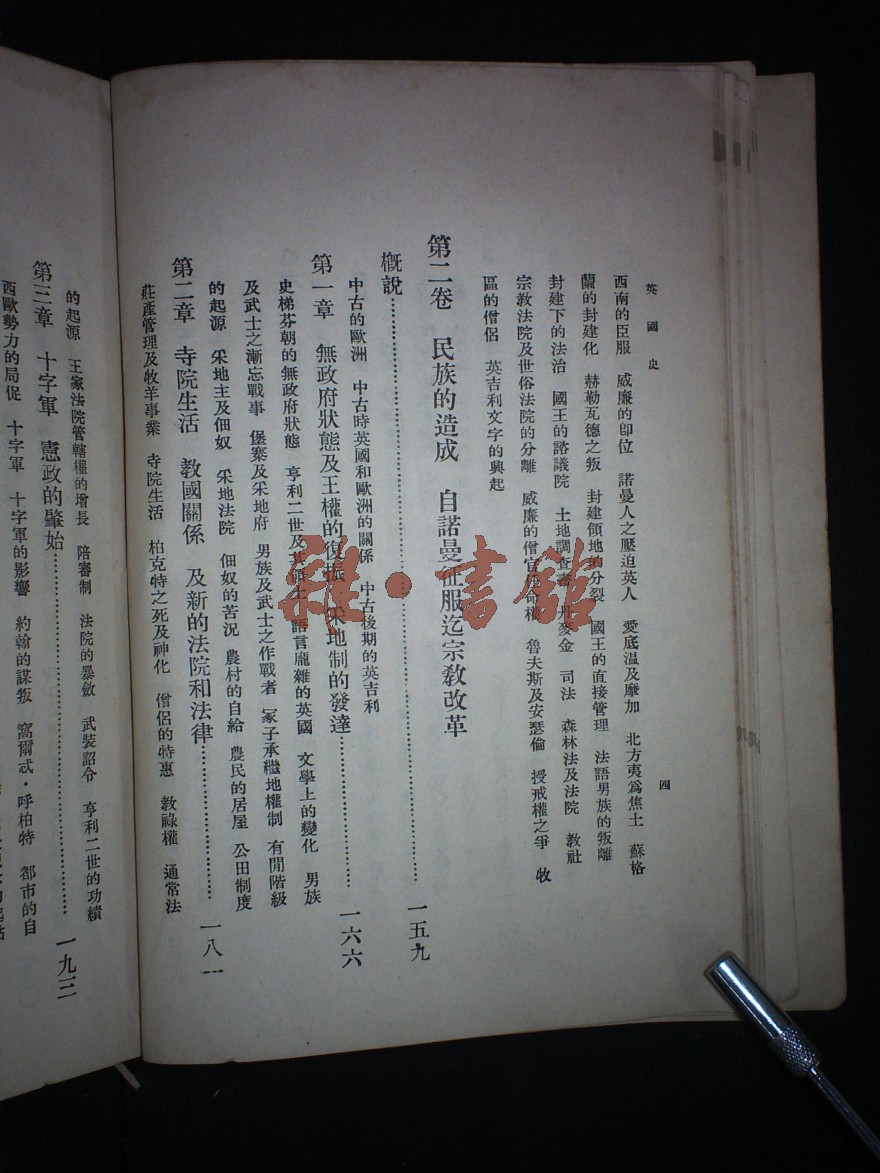 英國史
四
西南的臣服　威廉的卽位　諾曼人之壓迫英人　愛底溫及摩加　北方夷爲焦土　蘇格
蘭的封建化　赫勒瓦德之叛　封建領地的分裂　國王的直接管理　法語男族的叛離
封建下的法治　國王的諮議院　土地調查書　丹麥金　司法　森林法及法院　教社
宗教法院及世俗法院的分離　威廉的僧官任命權　魯夫斯及安瑟倫　授戒權之爭　牧
區的僧侶　英吉利文字的興起
第二卷　民族的造成　自諾曼征服迄宗教改革
概說……一五九
中古的歐洲　中古時英國和歐洲的關係　中古後期的英吉利
第一章　無政府狀態及王權的復振　采地制的發達……一六六
史梯芬朝的無政府狀態　亨利二世及其領土　語言龐雜的英國　文學上的變化　男族
及武士之漸忘戰事　堡寨及采地府　男族及武士之作戰者　冢子承繼地權制　有閒階級
的起源　采地主及佃奴　采地法院　佃奴的苦況　農村的自給　農民的居屋　公田制度
莊產管理及牧羊事業
第二章　寺院生活　教國關係　及新的法院和法律……一八一
寺院生活　柏克特之死及神化　僧侶的特惠　教祿權　通常法
的起源　王家法院管轄權的增長　陪審制　法院的暴斂　武裝詔令　亨利二世的功績
第三章　十字軍　憲政的肇始……一九三
西歐勢力的局促　十字軍　十字軍的影響　約翰的謀叛　窩爾忒·呼柏特　都市的自
雜·書館